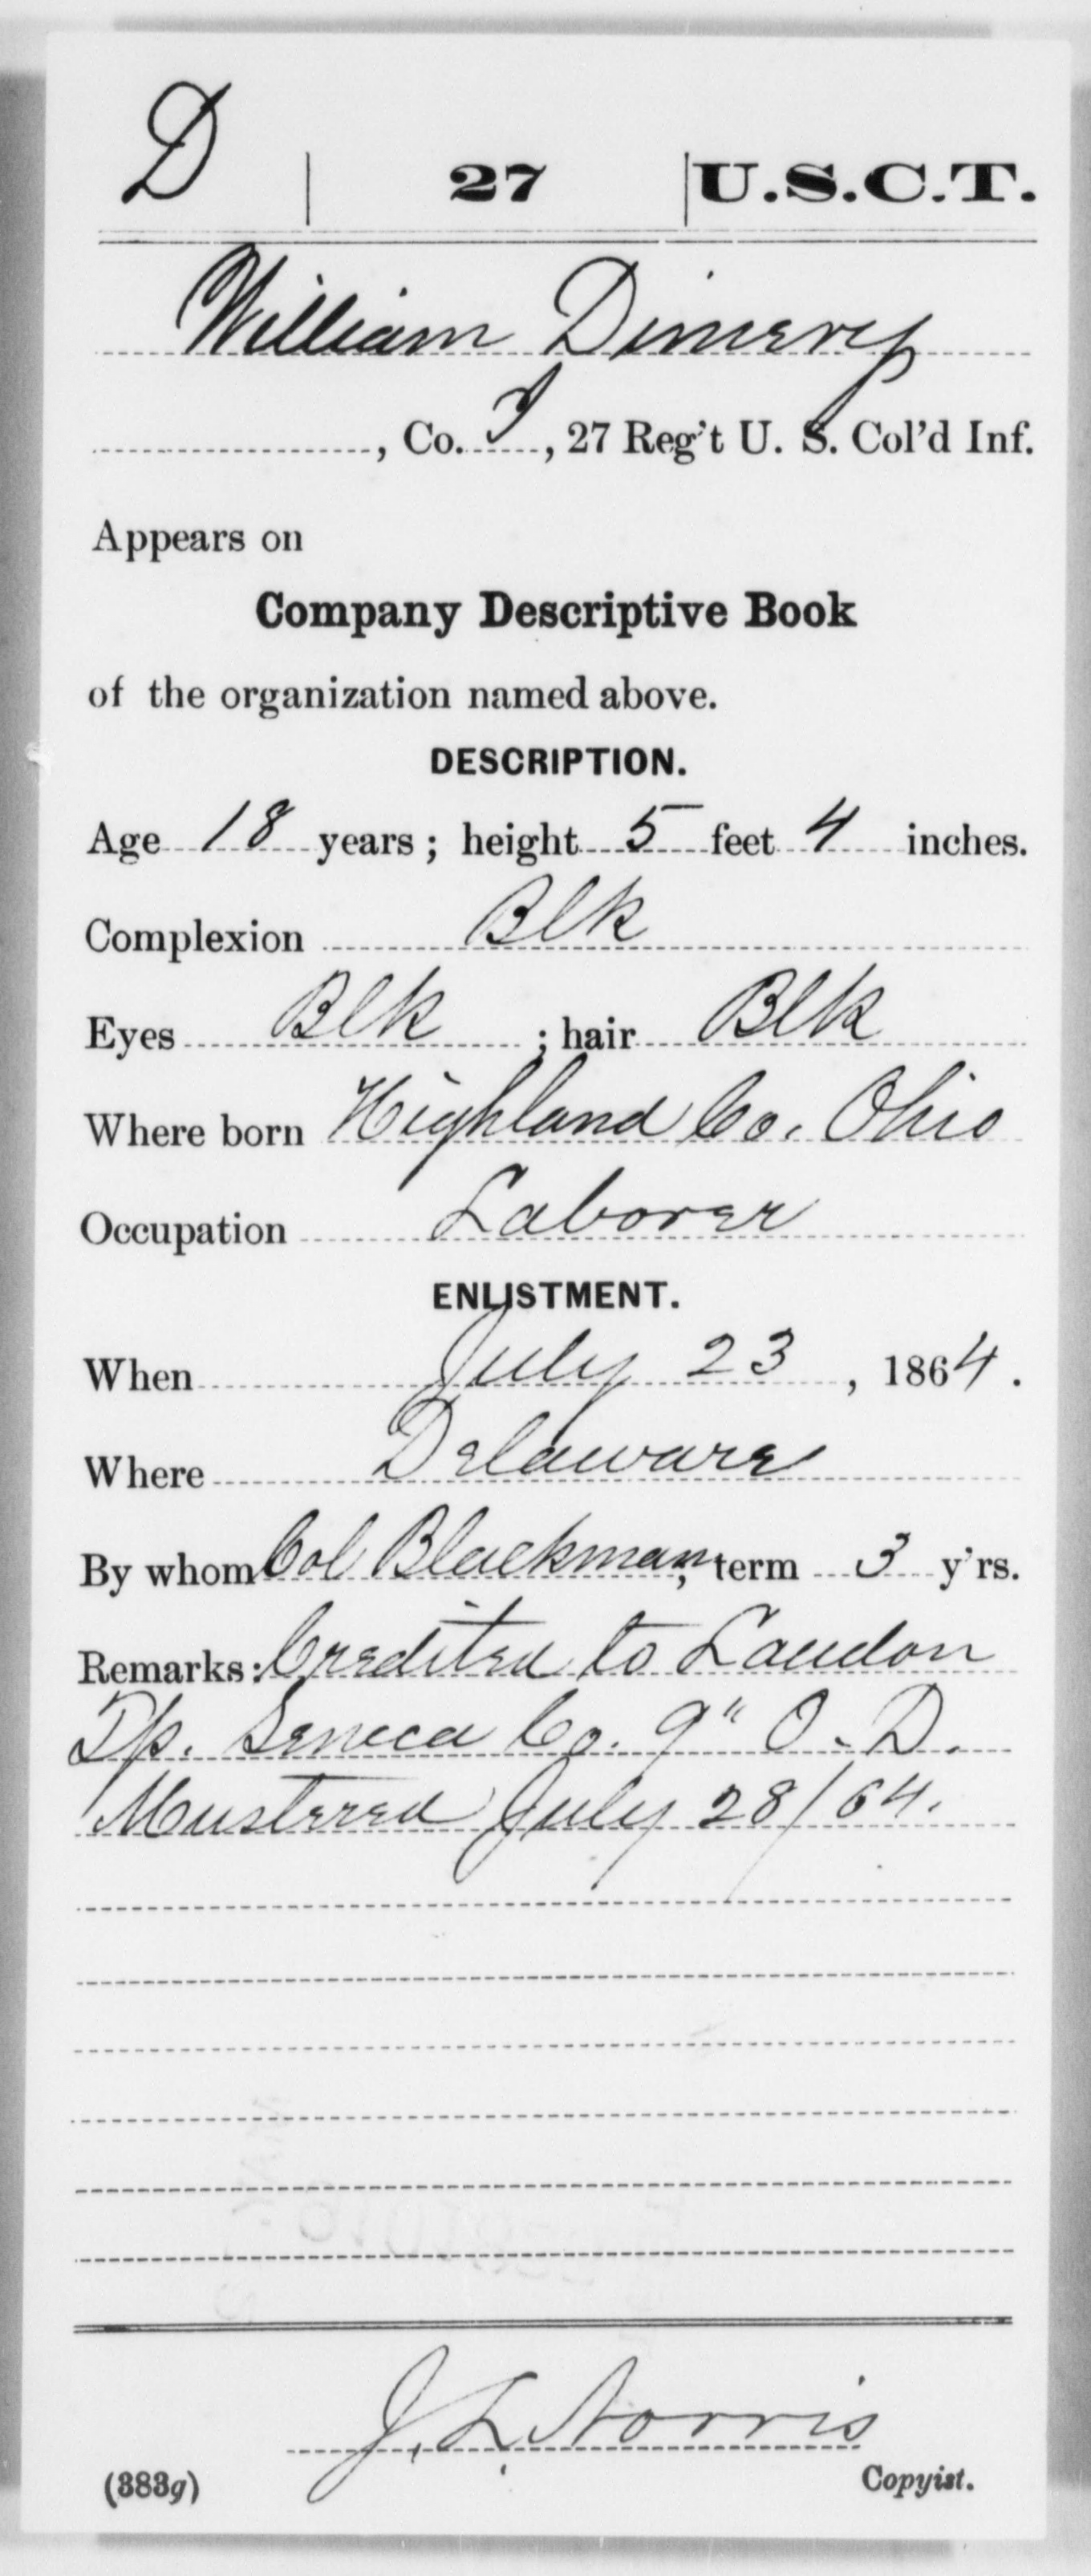 D | 27 | U.S.C.T.
William Dimery
, Co. I, 27 Reg't U. S. Col'd Inf.
Appears on
Company Descriptive Book
of the organization named above.
DESCRIPTION.
Age 18 years; height 5 feet 4 inches.
Complexion Blk
Eyes Blk ; hair Blk
Where born Highland Co. Ohio
Occupation Laborer
ENLISTMENT.
When July 23, 1864.
Where Delaware
By whom Col Blackman, term 3 y'rs.
Remarks: Credited to Laudon
Tp. Seneca Co. 9" O. D.
Mustered July 28/64.
J. L. Norris
(383g) Copyist.